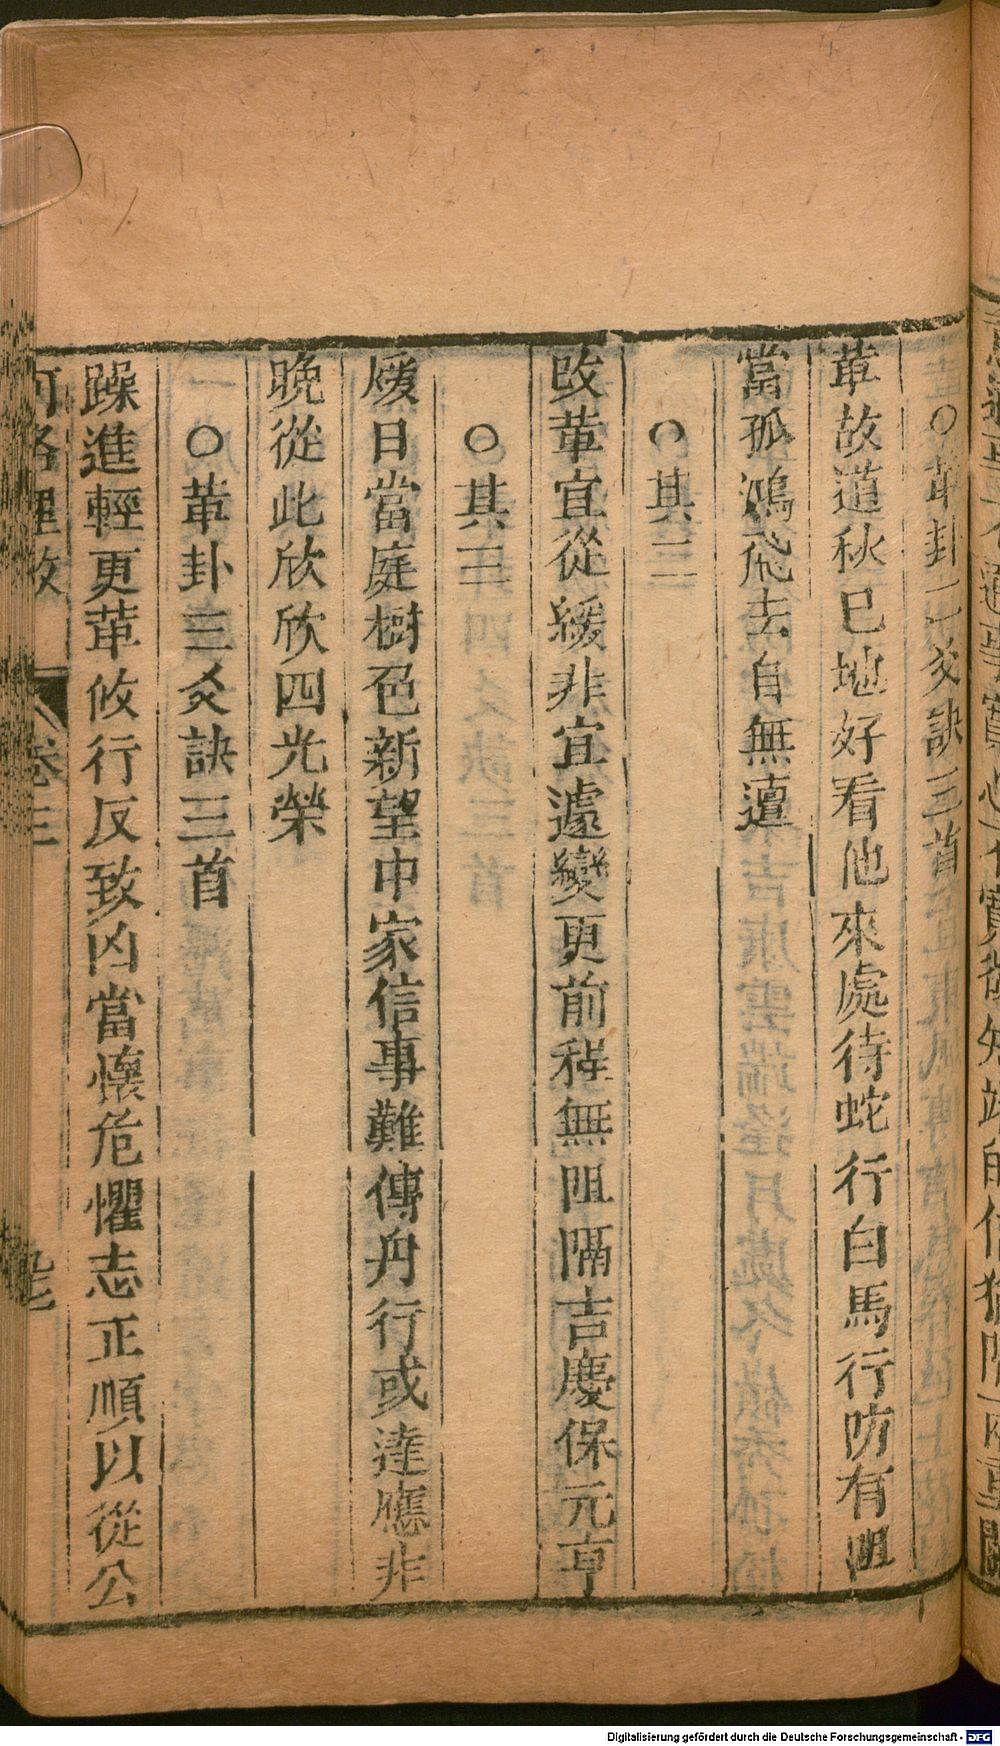 ○革卦二爻訣三首
革故道秋已地好看他來處待蛇行白馬行防有阻
當孤鴻飛去自無邅
○其二
改革宜從緩非宜遽變更前程無阻隔吉慶保元亨
○其三
煖日當庭樹色新望中家信事難傳丹行或達應非
晚從此欣欣四光榮
○革卦三爻訣三首
躁進輕更革攸行反致凶當懷危懼志正順以從公
河洛理數
卷三
Digitalisierung gefördert durch die Deutsche Forschungsgemeinschaft - DFG